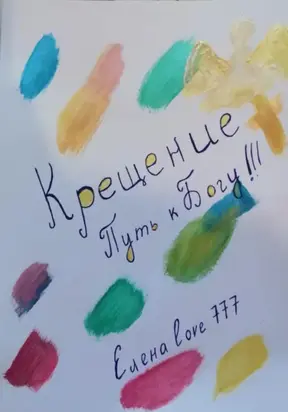 Крещение
Путь к Богу!!!
Елена love 777